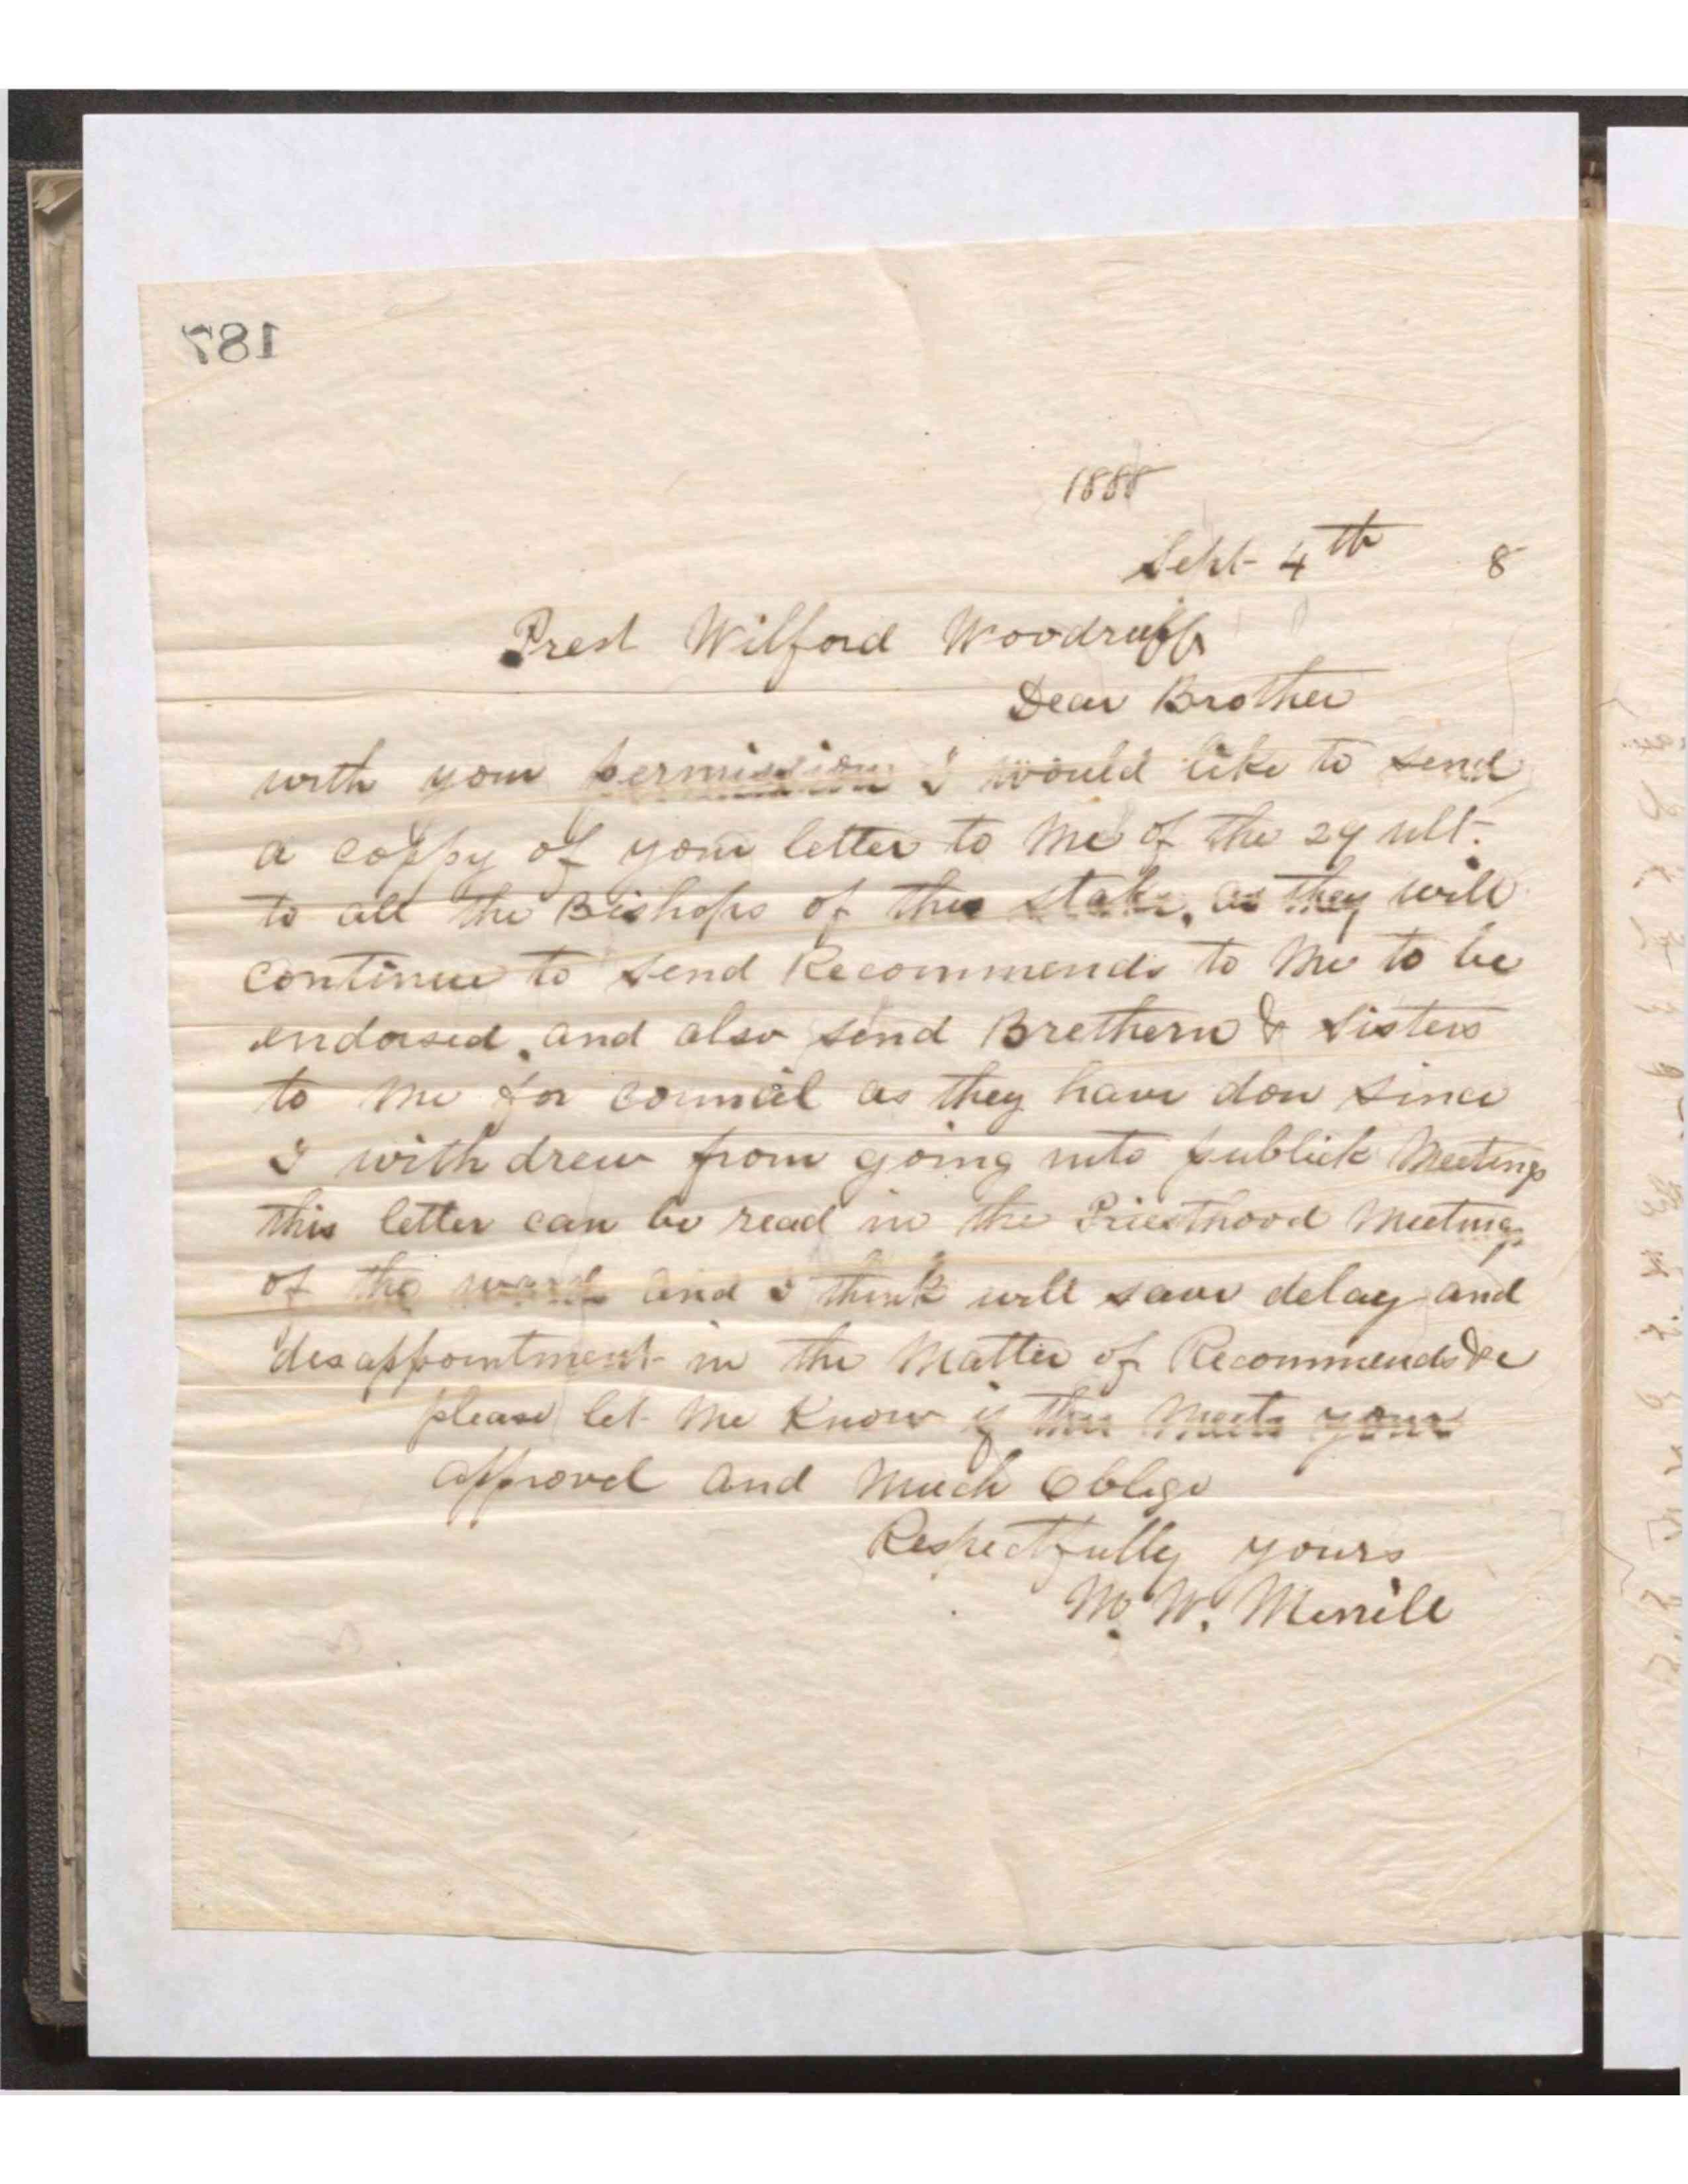 187
1888
Sept 4th 8
Prest Wilford Woodruff
Dear Brother
with your permission I would like to send
a coppy of your letter to me of the 29 ult.
to all the Bishops of this stake, as they will
continue to send Recommends to Me to be
endorsed, and also send Brethern & Sisters
to me for council as they have don since
I with drew from going into publick Meetings
this letter can be read in the Priesthood Meetings
of the ward and I think will save delay and
disappointment in the Matter of Recommends &c
please let Me Know if this Meets your
approvel and Much Oblige
Respectfully yours
M. W. Merrill